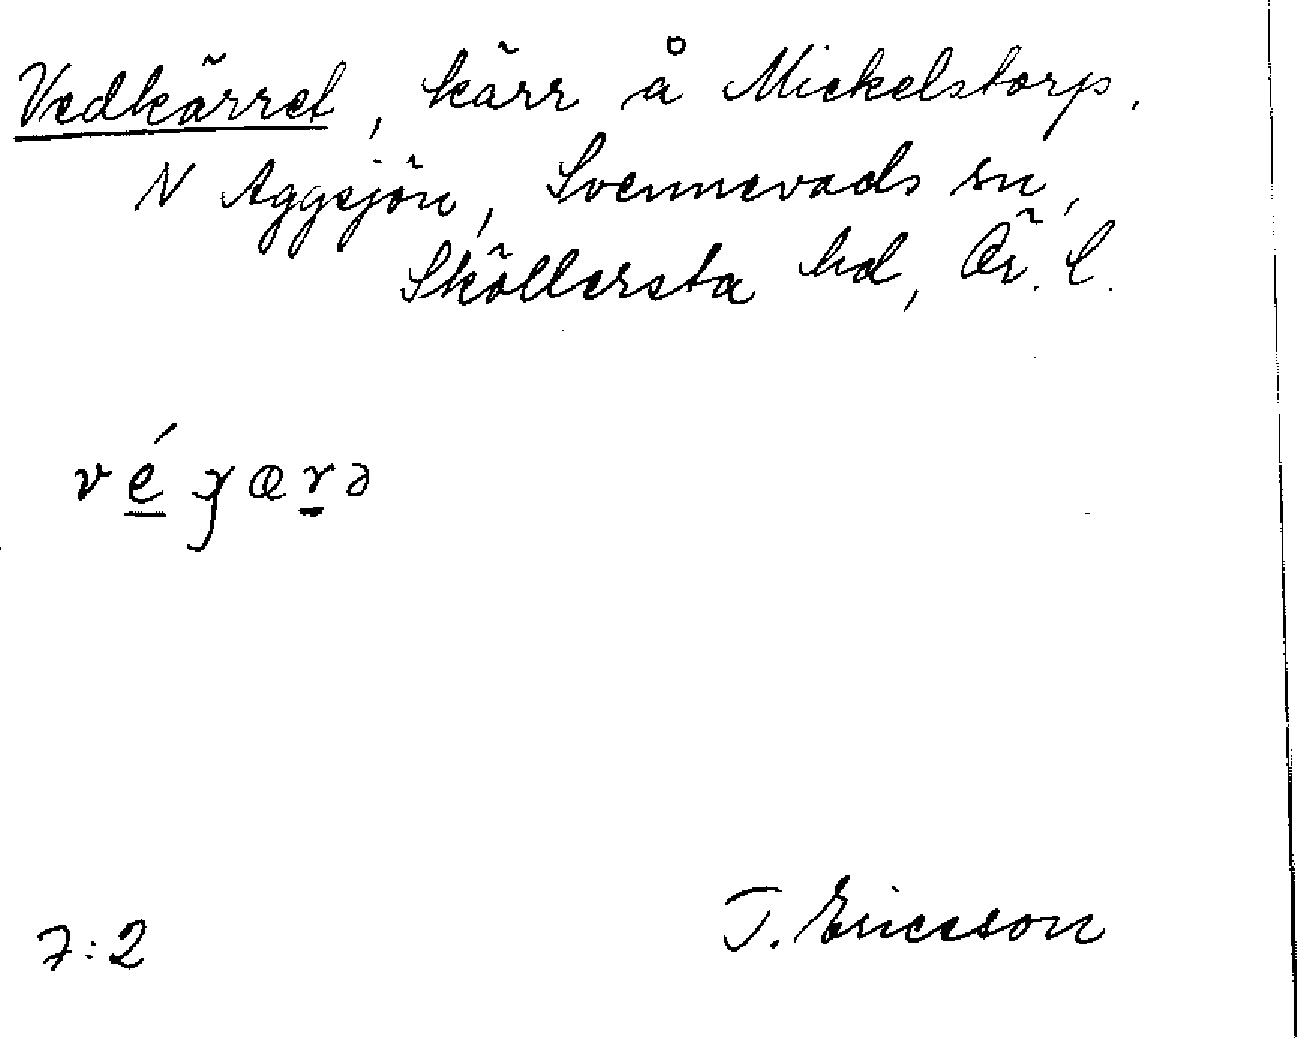 Vedkärret, kärr å Mickelstorp.
N Aggsjön, Svennevads sn,
Sköllersta hd, Ör. l.
vé̲ ɟær̲ə
7:2
T. Ericsson